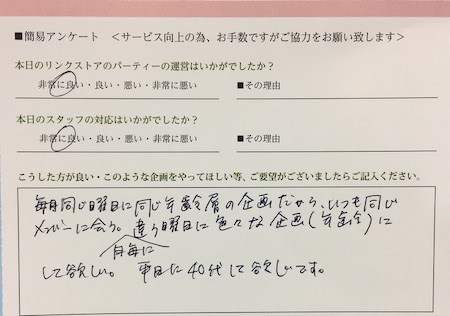 ■簡易アンケート ＜サービス向上の為、お手数ですがご協力をお願い致します＞
本日のリンクストアのパーティーの運営はいかがでしたか？
非常に良い・良い・悪い・非常に悪い ■その理由
本日のスタッフの対応はいかがでしたか？
非常に良い・良い・悪い・非常に悪い ■その理由
こうした方が良い・このような企画をやってほしい等、ご要望がございましたらご記入ください。
毎月同じ日曜日に同じ年齢層の企画だから、いつも同じ
メンバーに会う。違う曜日に色々な企画(年令)に
月毎に
して欲しい。 平日に40代して欲しいです。